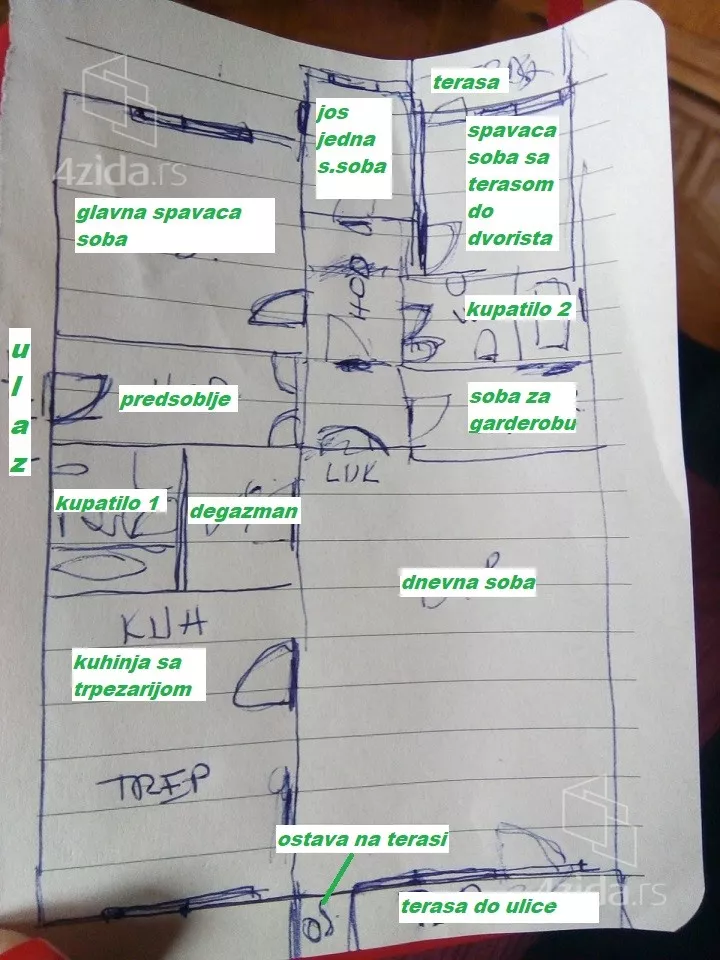 terasa
jos
jedna
s.soba
spavaca
soba sa
terasom
do
dvorista
4zida.rs
glavna spavaca
soba
HOD
kupatilo 2
u
l
a
z
predsoblje
soba za
garderobu
LUK
kupatilo 1
degazman
dnevna soba
KUH
kuhinja sa
trpezarijom
TREP
ostava na terasi
4zida.rs
terasa do ulice
OS.